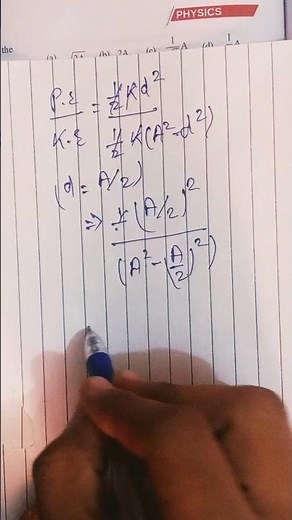 PHYSICS
the (a) √2A (b) 2A (c) 1 A (d) 1 A
P.E/K.E = ½Kd²/½K(A²-d²)
(d = A/2)
⇒ (A/2)²/(A²-(A/2)²)